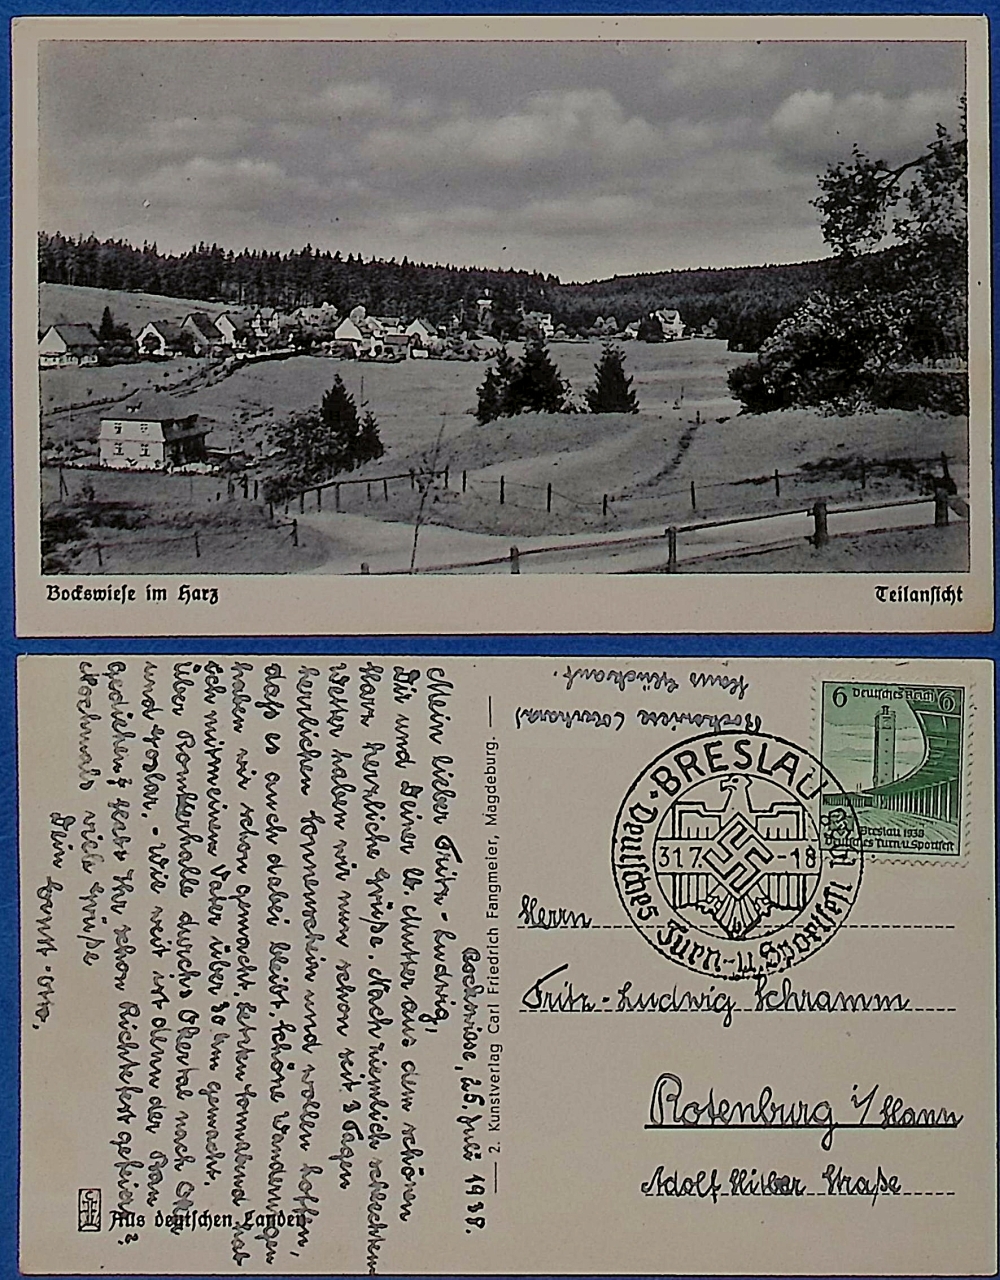 Bockswiese im Harz
Teilansicht
Bockswiese, 25. Juli 1938.
Mein lieber Fritz-Ludwig,
Dir und Deiner lb. Mutter aus dem schönen
Harz herzliche Grüße. Nach ziemlich schlechtem
Wetter haben wir nun schon seit 3 Tagen
herrlichen Sonnenschein und wollen hoffen,
daß es auch dabei bleibt. Schöne Wanderungen
haben wir schon gemacht. Letzten Sonnabend hab
ich mit meinem Vater über 30 km gemacht.
Über Romkerhalle durchs Okertal nach Oker
und Goslar. - Wie weit ist denn der Bau
gediehen? Habt Ihr schon Richtefest gefeiert?
Nochmals viele Grüße
Dein Horst-Otto.
Aus deutschen Landen
2. Kunstverlag Carl Friedrich Fangmeier, Magdeburg.
Bockswiese (Oberharz)
Haus
6 Deutsches Reich 6
Breslau 1938
Deutsches Turn u. Sportfest
BRESLAU
31.7. -18
Deutsches Turn- u. Sportfest
Herrn
Fritz-Ludwig Schramm
Rotenburg i/Hann
Adolf Hitler Straße